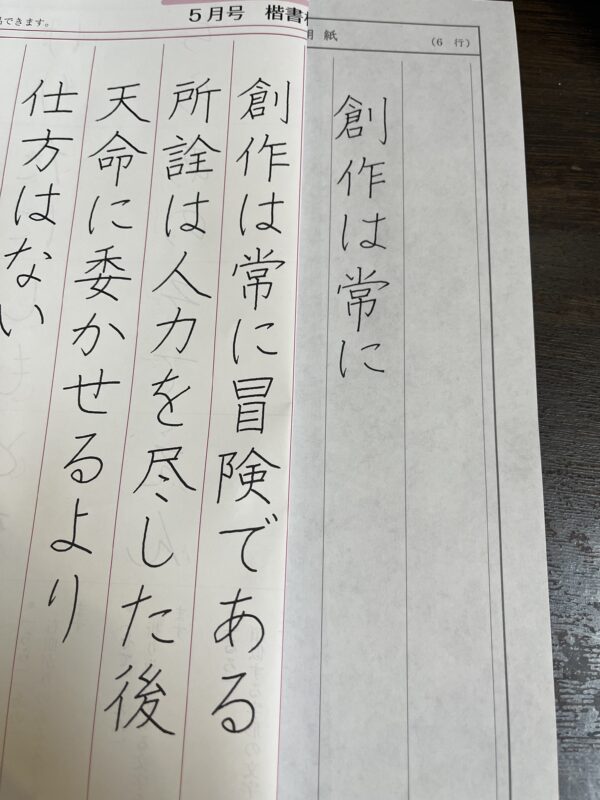 できます。
5月号 楷書
用紙
(6 行)
創作は常に
創作は常に冒険である
所詮は人力を尽した後
天命に委かせるより
仕方はない